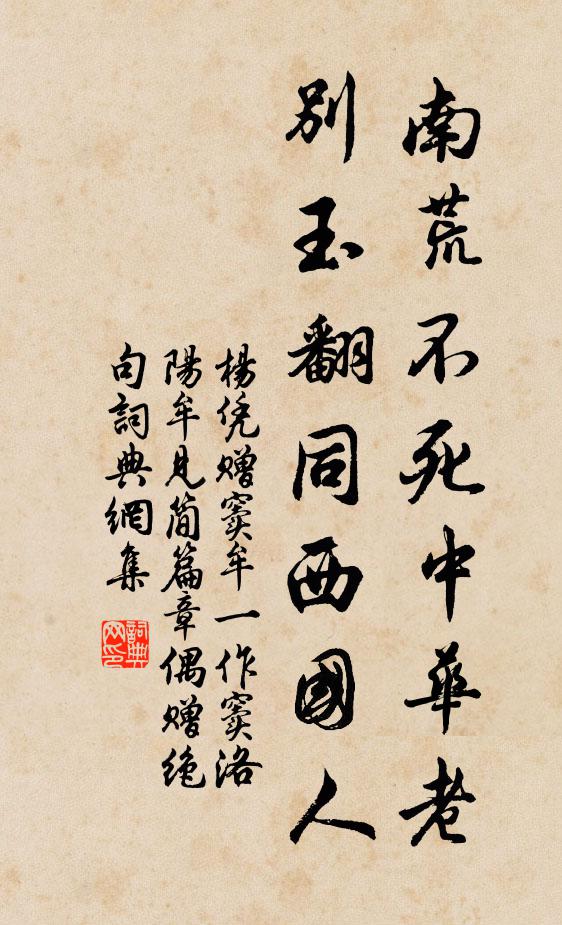 南荒不死中華老
別玉翻同西國人
楊凭贈竇牟一作竇洛
陽牟見簡篇章偶贈絕
句詞典網集
詞典
网印